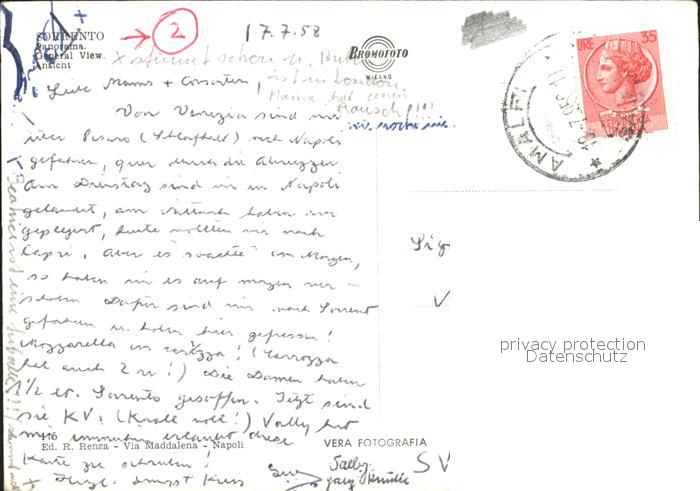 SORRENTO
Panorama.
General View.
Ansicht
2
17.7.58
BROMOFOTO
MILANO
LIRE 35
AMALFI
Liebe Mama + Consorten,
ist in London
Mama hat einen
Rausch!!!
Von Venezia sind wir
über Pesaro (Schlafhalt) nach Napoli
gefahren, quer durch die Abruzzen
Am Dienstag sind wir in Napoli
gelandet, am Mittwoch haben wir
heute wollten wir nach
Capri, aber es am Morgen,
so haben wir es auf morgen ver-
schoben. Dafür sind wir nach Sorrent
gefahren u. haben hier gefressen!
Mozzarella in carozza! (Carrozza
hat auch 2 rr!) Die Damen haben
1/2 lt. Sorrento gesoffen. Jetzt sind
sie KV! (Kralle voll!) Vally hat
mir immerhin erlaubt diese
Karte zu schreiben!
Sig
V
privacy protection
Datenschutz
Ed. R. Renza - Via Maddalena - Napoli
VERA FOTOGRAFIA
S V